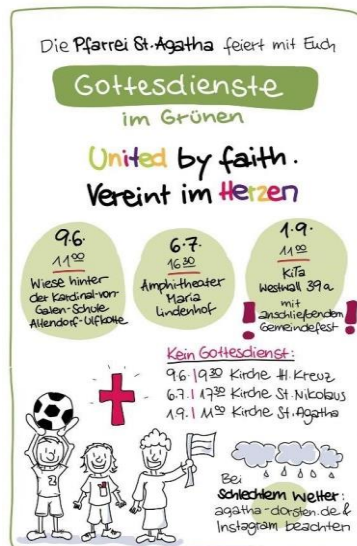 Die Pfarrei St. Agatha feiert mit Euch
Gottesdienste
im Grünen
United by faith.
Vereint im Herzen
9.6.
11⁰⁰
Wiese hinter
der Kardinal-von-
Galen-Schule
Altendorf-Ulfkotte
6.7.
16³⁰
Amphitheater
Maria
Lindenhof
1.9.
11⁰⁰
KiTa
Westwall 39a
mit
! anschließendem !
Gemeindefest
Kein Gottesdienst:
9.6. | 9³⁰ Kirche Hl. Kreuz
6.7. | 17³⁰ Kirche St. Nikolaus
1.9. | 11⁰⁰ Kirche St. Agatha
2
Bei
schlechtem Wetter:
agatha-dorsten.de &
Instagram beachten